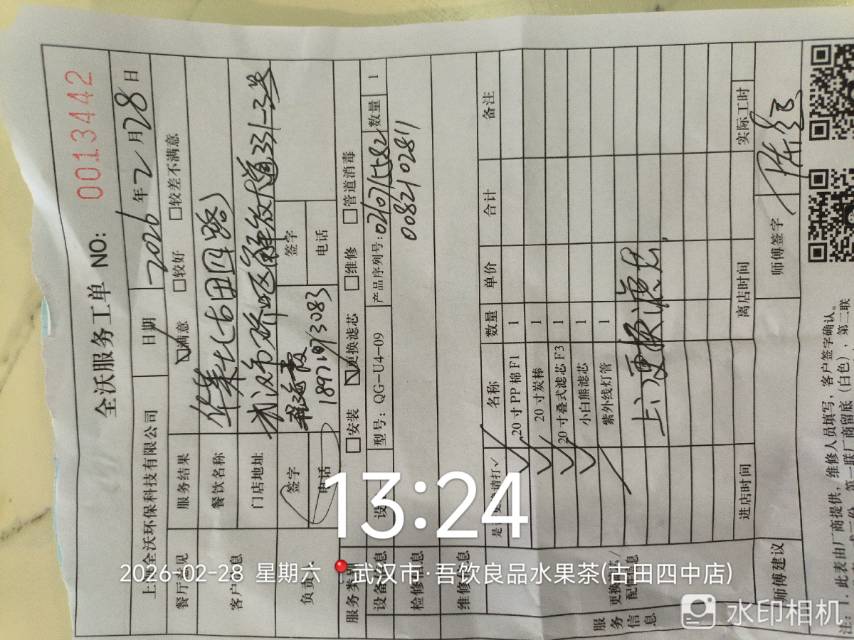 全沃服务工单 NO: 0013442
上海全沃环保科技有限公司 日期 2026年2月28日
餐厅意见 服务结果 ☑满意 □较好 □较差不满意
客户信息 餐饮名称 华莱士(古田四路)
门店地址 武汉市硚口区解放大道331-3号
签字 签字
电话 18971073083 电话
服务类别 □安装 ☑更换滤芯 □维修 □管道消毒
设备信息 型号: QG-U4-09 产品序列号: 020715582 数量 1
0082102811
检修信息
维修信息
名称 数量 单价 合计 备注
✓ 20寸PP棉F1 1
✓ 20寸炭棒 1
✓ 20寸叠式滤芯F3 1
✓ 小白熊滤芯 1
紫外线灯管 1
上门更换滤芯
服务信息 进店时间 离店时间 实际工时
师傅建议 师傅签字
注: 1. 此表由厂商提供, 维修人员填写, 客户签字确认。
13:24
2026-02-28 星期六 武汉市·吾饮良品水果茶(古田四中店)
水印相机